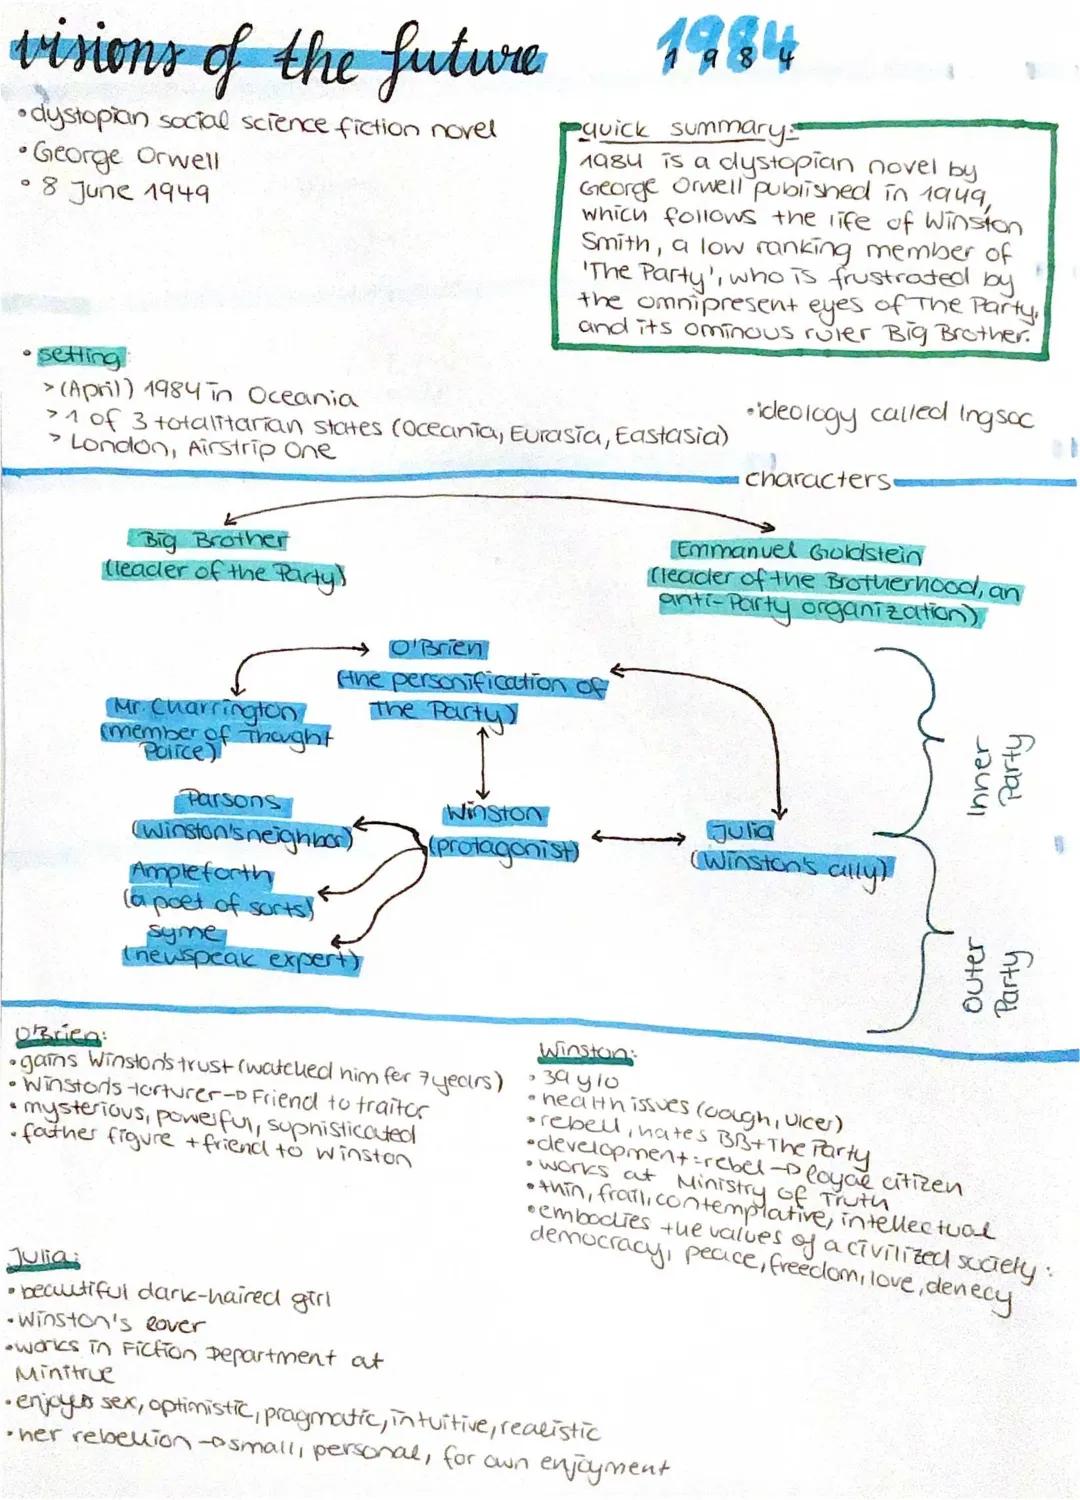 visions of the future
1984
1984
• dystopian social science fiction novel
• George Orwell
• 8 June 1949
quick summary:
1984 is a dystopian novel by
George Orwell published in 1949,
which follows the life of Winston
Smith, a low ranking member of
'The Party', who is frustrated by
the omnipresent eyes of The Party,
and its ominous ruler Big Brother.
• setting:
> (April) 1984 in Oceania
> 1 of 3 totalitarian states (Oceania, Eurasia, Eastasia)
> London, Airstrip One
• ideology called Ingsoc
characters
Big Brother
(leader of the Party)
Emmanuel Goldstein
(leader of the Brotherhood, an
anti-Party organization)
O'Brien
(the personification of
The Party)
Mr. Charrington
(member of Thought
Police)
Parsons
(Winston's neighbor)
Ampleforth
(a poet of sorts)
Syme
(newspeak expert)
Winston
(protagonist)
Julia
(Winston's ally)
Inner
Party
Outer
Party
O'Brien:
• gains Winston's trust (watched him for 7 years)
• Winston's torturer → Friend to traitor
• mysterious, powerful, sophisticated
• father figure + friend to Winston
Winston:
• 39 y/o
• health issues (cough, ulcer)
• rebell, hates BB + The Party
• development: rebel → loyal citizen
• works at Ministry of Truth
• thin, frail, contemplative, intellectual
• embodies the values of a civilized society:
democracy, peace, freedom, love, denecy
Julia:
• beautiful dark-haired girl
• Winston's lover
• works in Fiction Department at
Minitrue
• enjoys sex, optimistic, pragmatic, intuitive, realistic
• her rebellion → small, personal, for own enjoyment